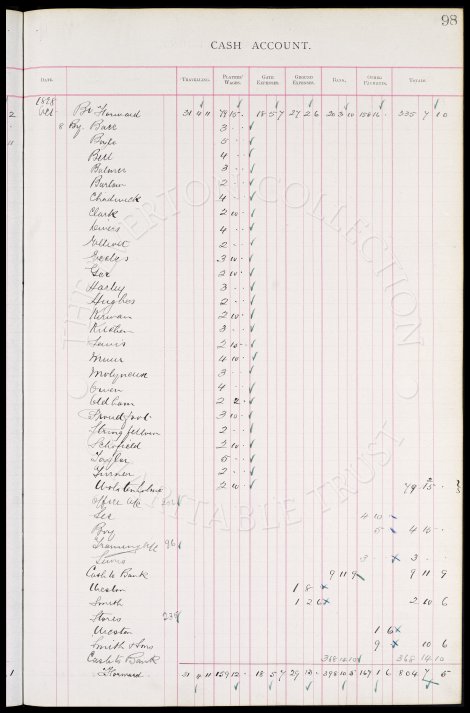 98
CASH ACCOUNT.
DATE. TRAVELLING. PLAYERS' WAGES. GATE EXPENSES. GROUND EXPENSES. BANK. OTHER PAYMENTS. TOTALS.
1898
Oct Bt Forward 31 4 11 79 15 - 18 5 7 27 2 6 20 3 10 158 16 - 335 7 10
8 By Barr 3 - -
Boyle 5 - -
Bell 4 - -
Balmer 3 - -
Barlow 2 - -
Chadwick 4 - -
Clark 2 10 -
4 - -
2 - -
3 10 -
Gee 2 10 -
Hartley 3 - -
Hughes 2 - -
Kirwan 2 10 -
Kitchen 3 - -
Lewis 2 10 -
Muir 4 10 -
Molyneux 3 - -
Owen 4 - -
Oldham 2 2 -
Proudfoot 3 10 -
Stringfellow 2 - -
Schofield 2 10 -
Taylor 5 - -
Turner 2 - -
Wolstenholme 2 10 - 79 12 -
Office a/c
Lee 4 10 -
Boy 5 - 4 15 -
Training a/c 96
Lewis 3 - - 3 - -
Cash to Bank 9 11 9 9 11 9
Weston 1 8 -
Smith 1 2 6 2 10 6
Stores 239
Weston 1 6
Smith & Sons 9 - 10 6
Cash to Bank 368 14 10 368 14 10
Forward 31 4 11 159 12 - 18 5 7 29 13 - 398 10 5 167 1 6 804 7 5
THE EVERTON COLLECTION
CHARITABLE TRUST